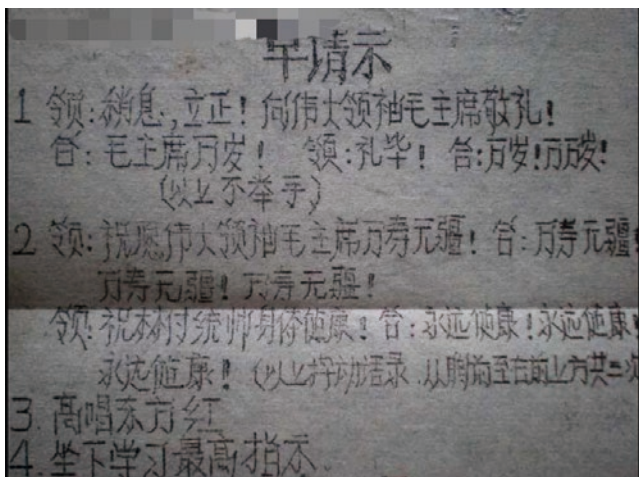 早请示
1 领:稍息,立正!向伟大领袖毛主席敬礼!
合:毛主席万岁! 领:礼毕! 合:万岁!万万岁!
(以上不举手)
2 领:祝愿伟大领袖毛主席万寿无疆!合:万寿无疆!
万寿无疆!万寿无疆!
领:祝林付统帅身体健康!合:永远健康!永远健康!
永远健康!(以上挥动语录.从胸前至右前上方共三次
3.高唱东方红
4.坐下学习最高指示.